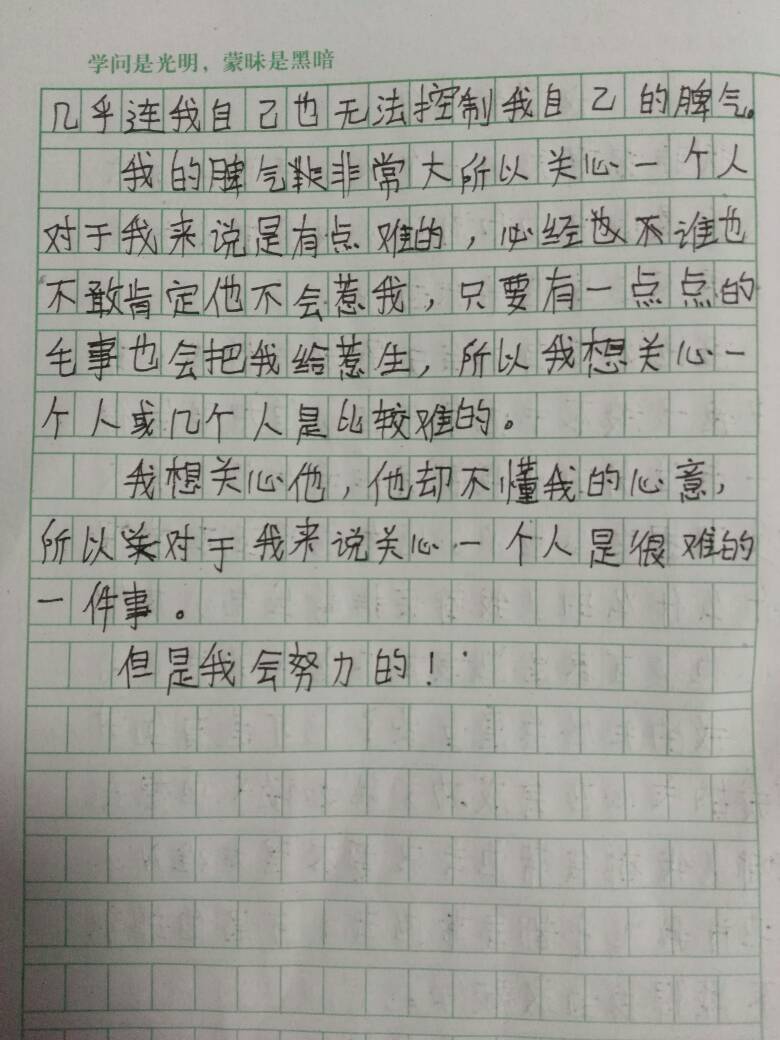 学问是光明，蒙昧是黑暗
几乎连我自己也无法控制我自己的脾气。
我的脾气非常大所以关心一个人
对于我来说是有点难的，必经也不谁也
不敢肯定他不会惹我，只要有一点点的
毛事也会把我给惹生，所以我想关心一
个人或几个人是比较难的。
我想关心他，他却不懂我的心意，
所以对于我来说关心一个人是很难的
一件事。
但是我会努力的！